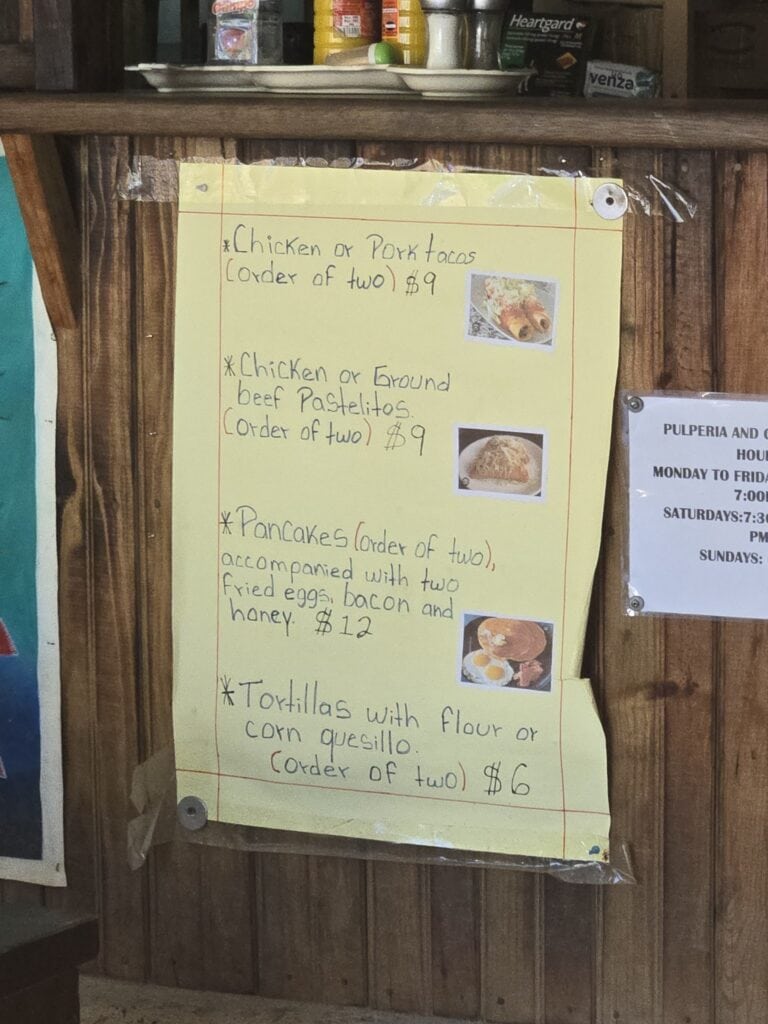 Heartgard
venza
*Chicken or Pork tacos
(order of two) $9
*Chicken or Ground
beef Pastelitos.
(order of two) $9
*Pancakes (order of two),
accompanied with two
fried eggs, bacon and
honey. $12
*Tortillas with flour or
corn quesillo.
(order of two) $6
PULPERIA AND
HOU
MONDAY TO FRIDA
7:00
SATURDAYS:7:3
PM
SUNDAYS: